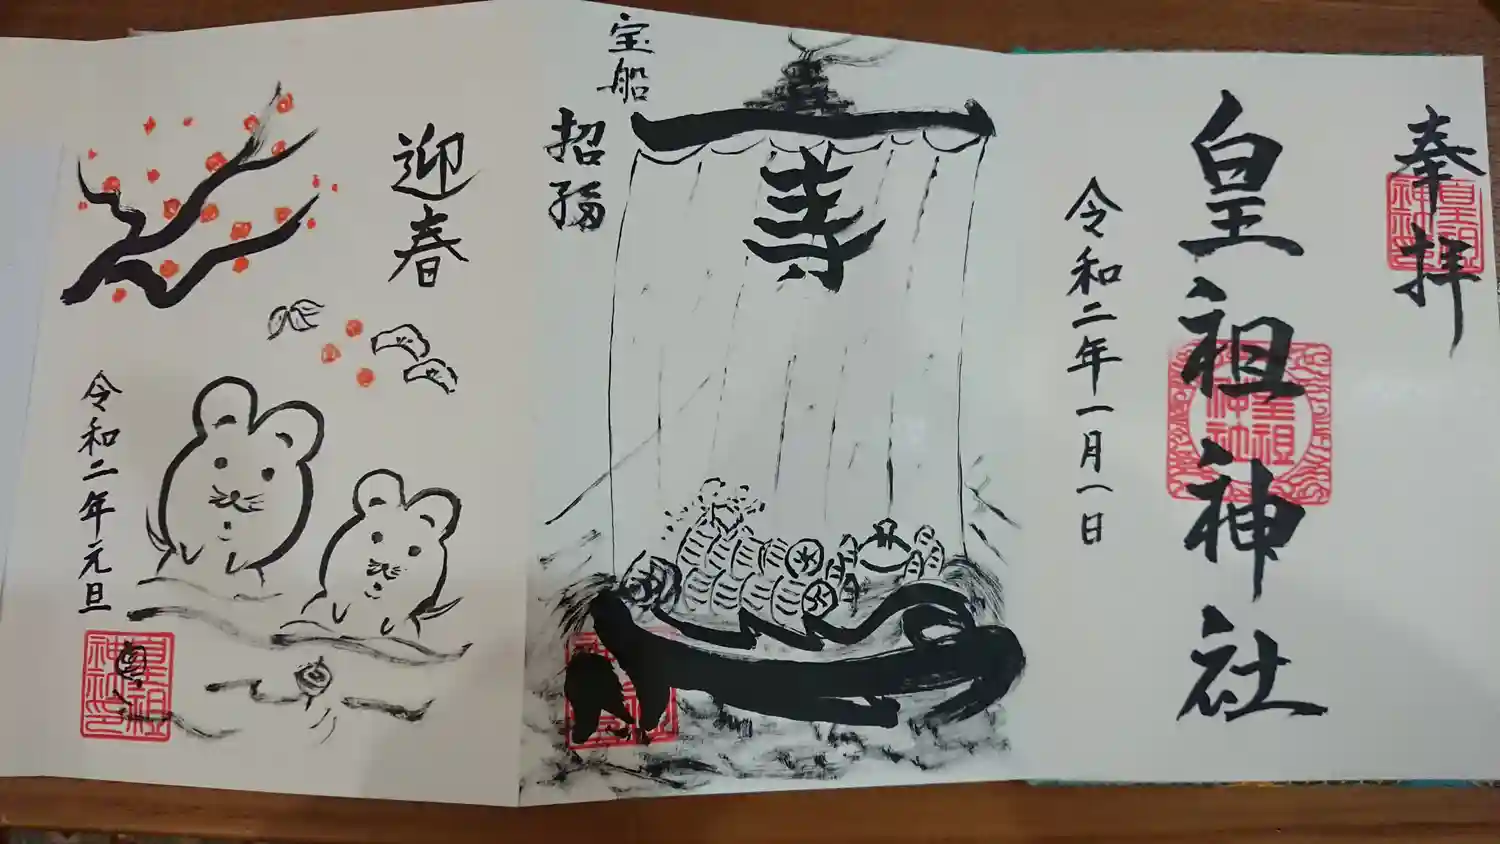 奉拝
皇祖神社
令和二年一月一日
宝船
招福
寿
迎春
令和二年元旦
皇祖
神社